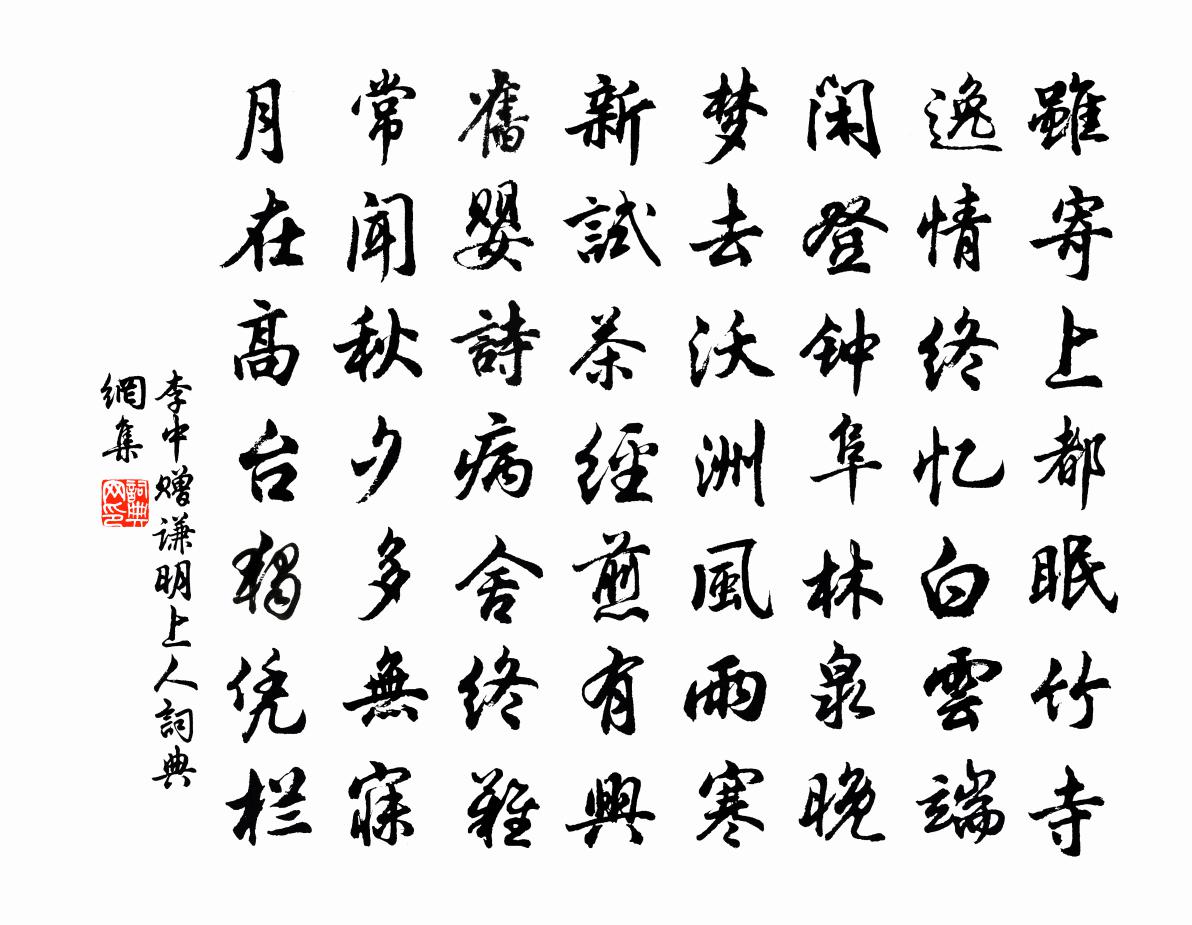 雖寄上都眠竹寺
逸情终忆白雲端
闲登钟阜林泉晚
梦去沃洲風雨寒
新試茶經煎有興
舊嬰詩病舍终難
常闻秋夕多無寐
月在高台獨凭栏
李中贈谦明上人詞典
網集
詞典
网印